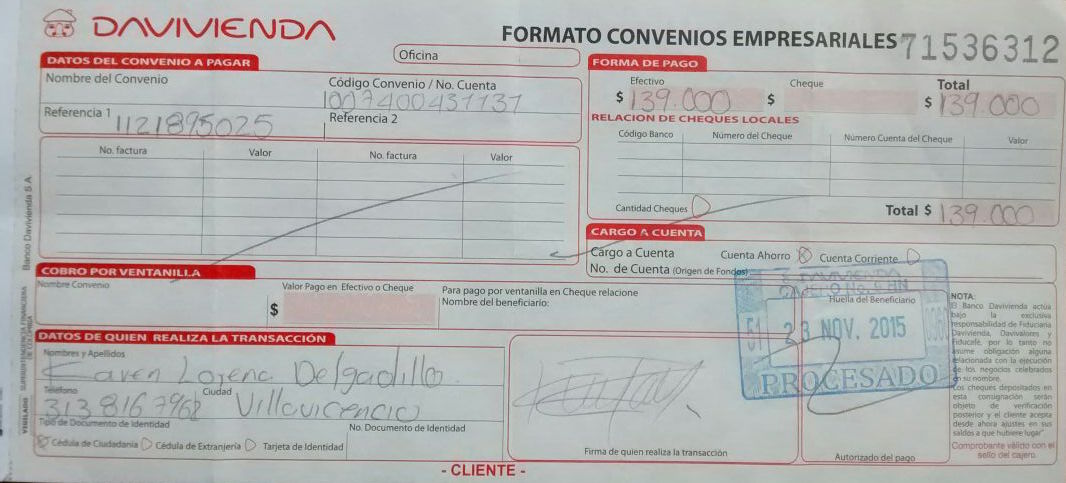 DAVIVIENDA
FORMATO CONVENIOS EMPRESARIALES 71536312
Oficina
DATOS DEL CONVENIO A PAGAR
Nombre del Convenio
Código Convenio / No. Cuenta
1007400431131
Referencia 1 1121895025
Referencia 2
No. factura Valor No. factura Valor
FORMA DE PAGO
Efectivo Cheque Total
$ 139.000 $ $ 139.000
RELACION DE CHEQUES LOCALES
Código Banco Número del Cheque Número Cuenta del Cheque Valor
Cantidad Cheques Total $ 139.000
CARGO A CUENTA
Cargo a Cuenta Cuenta Ahorro Cuenta Corriente
No. de Cuenta (Origen de Fondos)
COBRO POR VENTANILLA
Nombre Convenio
Valor Pago en Efectivo o Cheque
$
Para pago por ventanilla en Cheque relacione
Nombre del beneficiario:
DATOS DE QUIEN REALIZA LA TRANSACCIÓN
Nombres y Apellidos
Karen Lorena Delgadillo
Teléfono Ciudad
3138167968 Villavicencio
Tipo de Documento de Identidad No. Documento de Identidad
Cédula de Ciudadanía Cédula de Extranjería Tarjeta de Identidad
Firma de quien realiza la transacción
Huella del Beneficiario
DAVIVIENDA
51 23 NOV. 2015
PROCESADO
Autorizado del pago
NOTA:
El Banco Davivienda actúa
bajo la exclusiva
responsabilidad de Fiduciaria
Davivienda, Davivalores y
Fiducafé, por lo tanto no
asume obligación alguna
relacionada con la ejecución
de los negocios celebrados
en su nombre.
Los cheques depositados en
esta consignación serán
objeto de verificación
posterior y el cliente acepta
desde ahora ajustes en sus
saldos a que hubiere lugar"
Comprobante válido con el
sello del cajero.
- CLIENTE -
Banco Davivienda S.A.
VIGILADO SUPERINTENDENCIA FINANCIERA
DE COLOMBIA